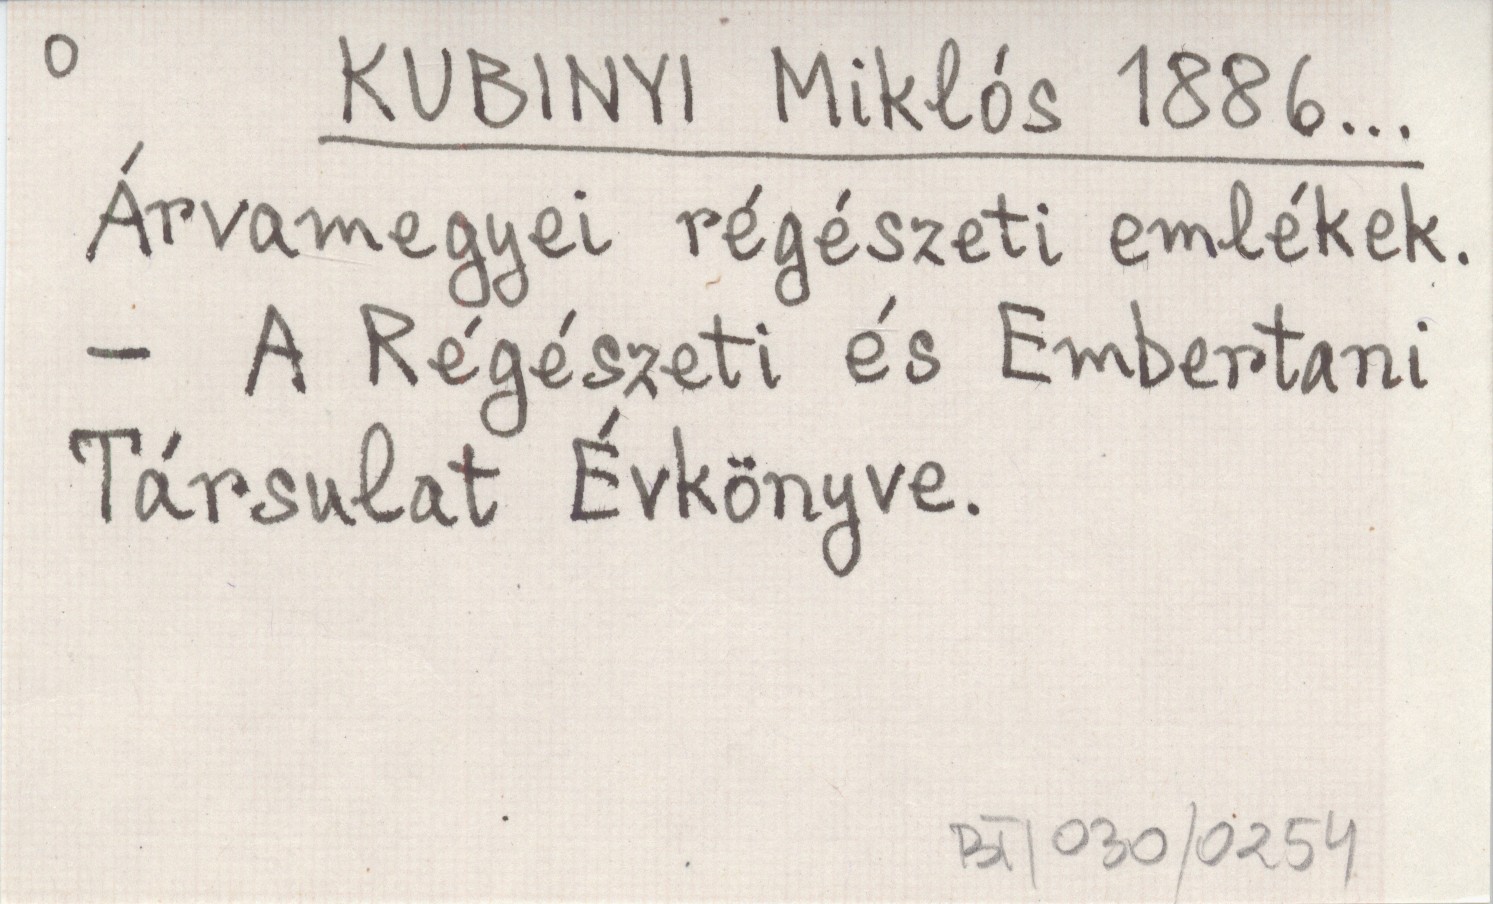 O KUBINYI Miklós 1886...
Árvamegyei régészeti emlékek.
– A Régészeti és Embertani
Társulat Évkönyve.
BT/030/0254